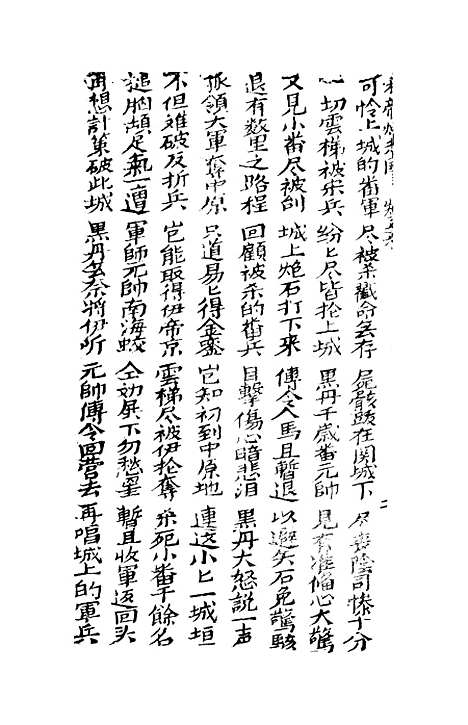 可怜上城的畨軍 尽被杀戳命無存 屍骸跌在関城下 尽喪陰司惨十分
一切雲梯被宋兵 紛匕尽皆抡上城 黒丹千歳畨元帥 見有准俻心大驚
又見小畨尽被刣 城上炮石打下来 傳令人馬且暫退 以避矢石免驚駭
退有数里之路程 回顧被杀的畨兵 目擊傷心暗悲泪 黒丹大怒説一声
孤領大軍奪中原 只道易匕得金銮 岂知初到中原地 連这小匕一城垣
不但难破反折兵 岂能取得伊帝京 雲梯尽被伊抡奪 杀死小畨千餘名
搥胸頓足氣一遭 軍師元帥南海蛟 仝効屏下勿愁 暫且收軍返回头
再想計策破此城 黒丹無奈將伊听 元帥傳令回营去 再唱城上的軍兵